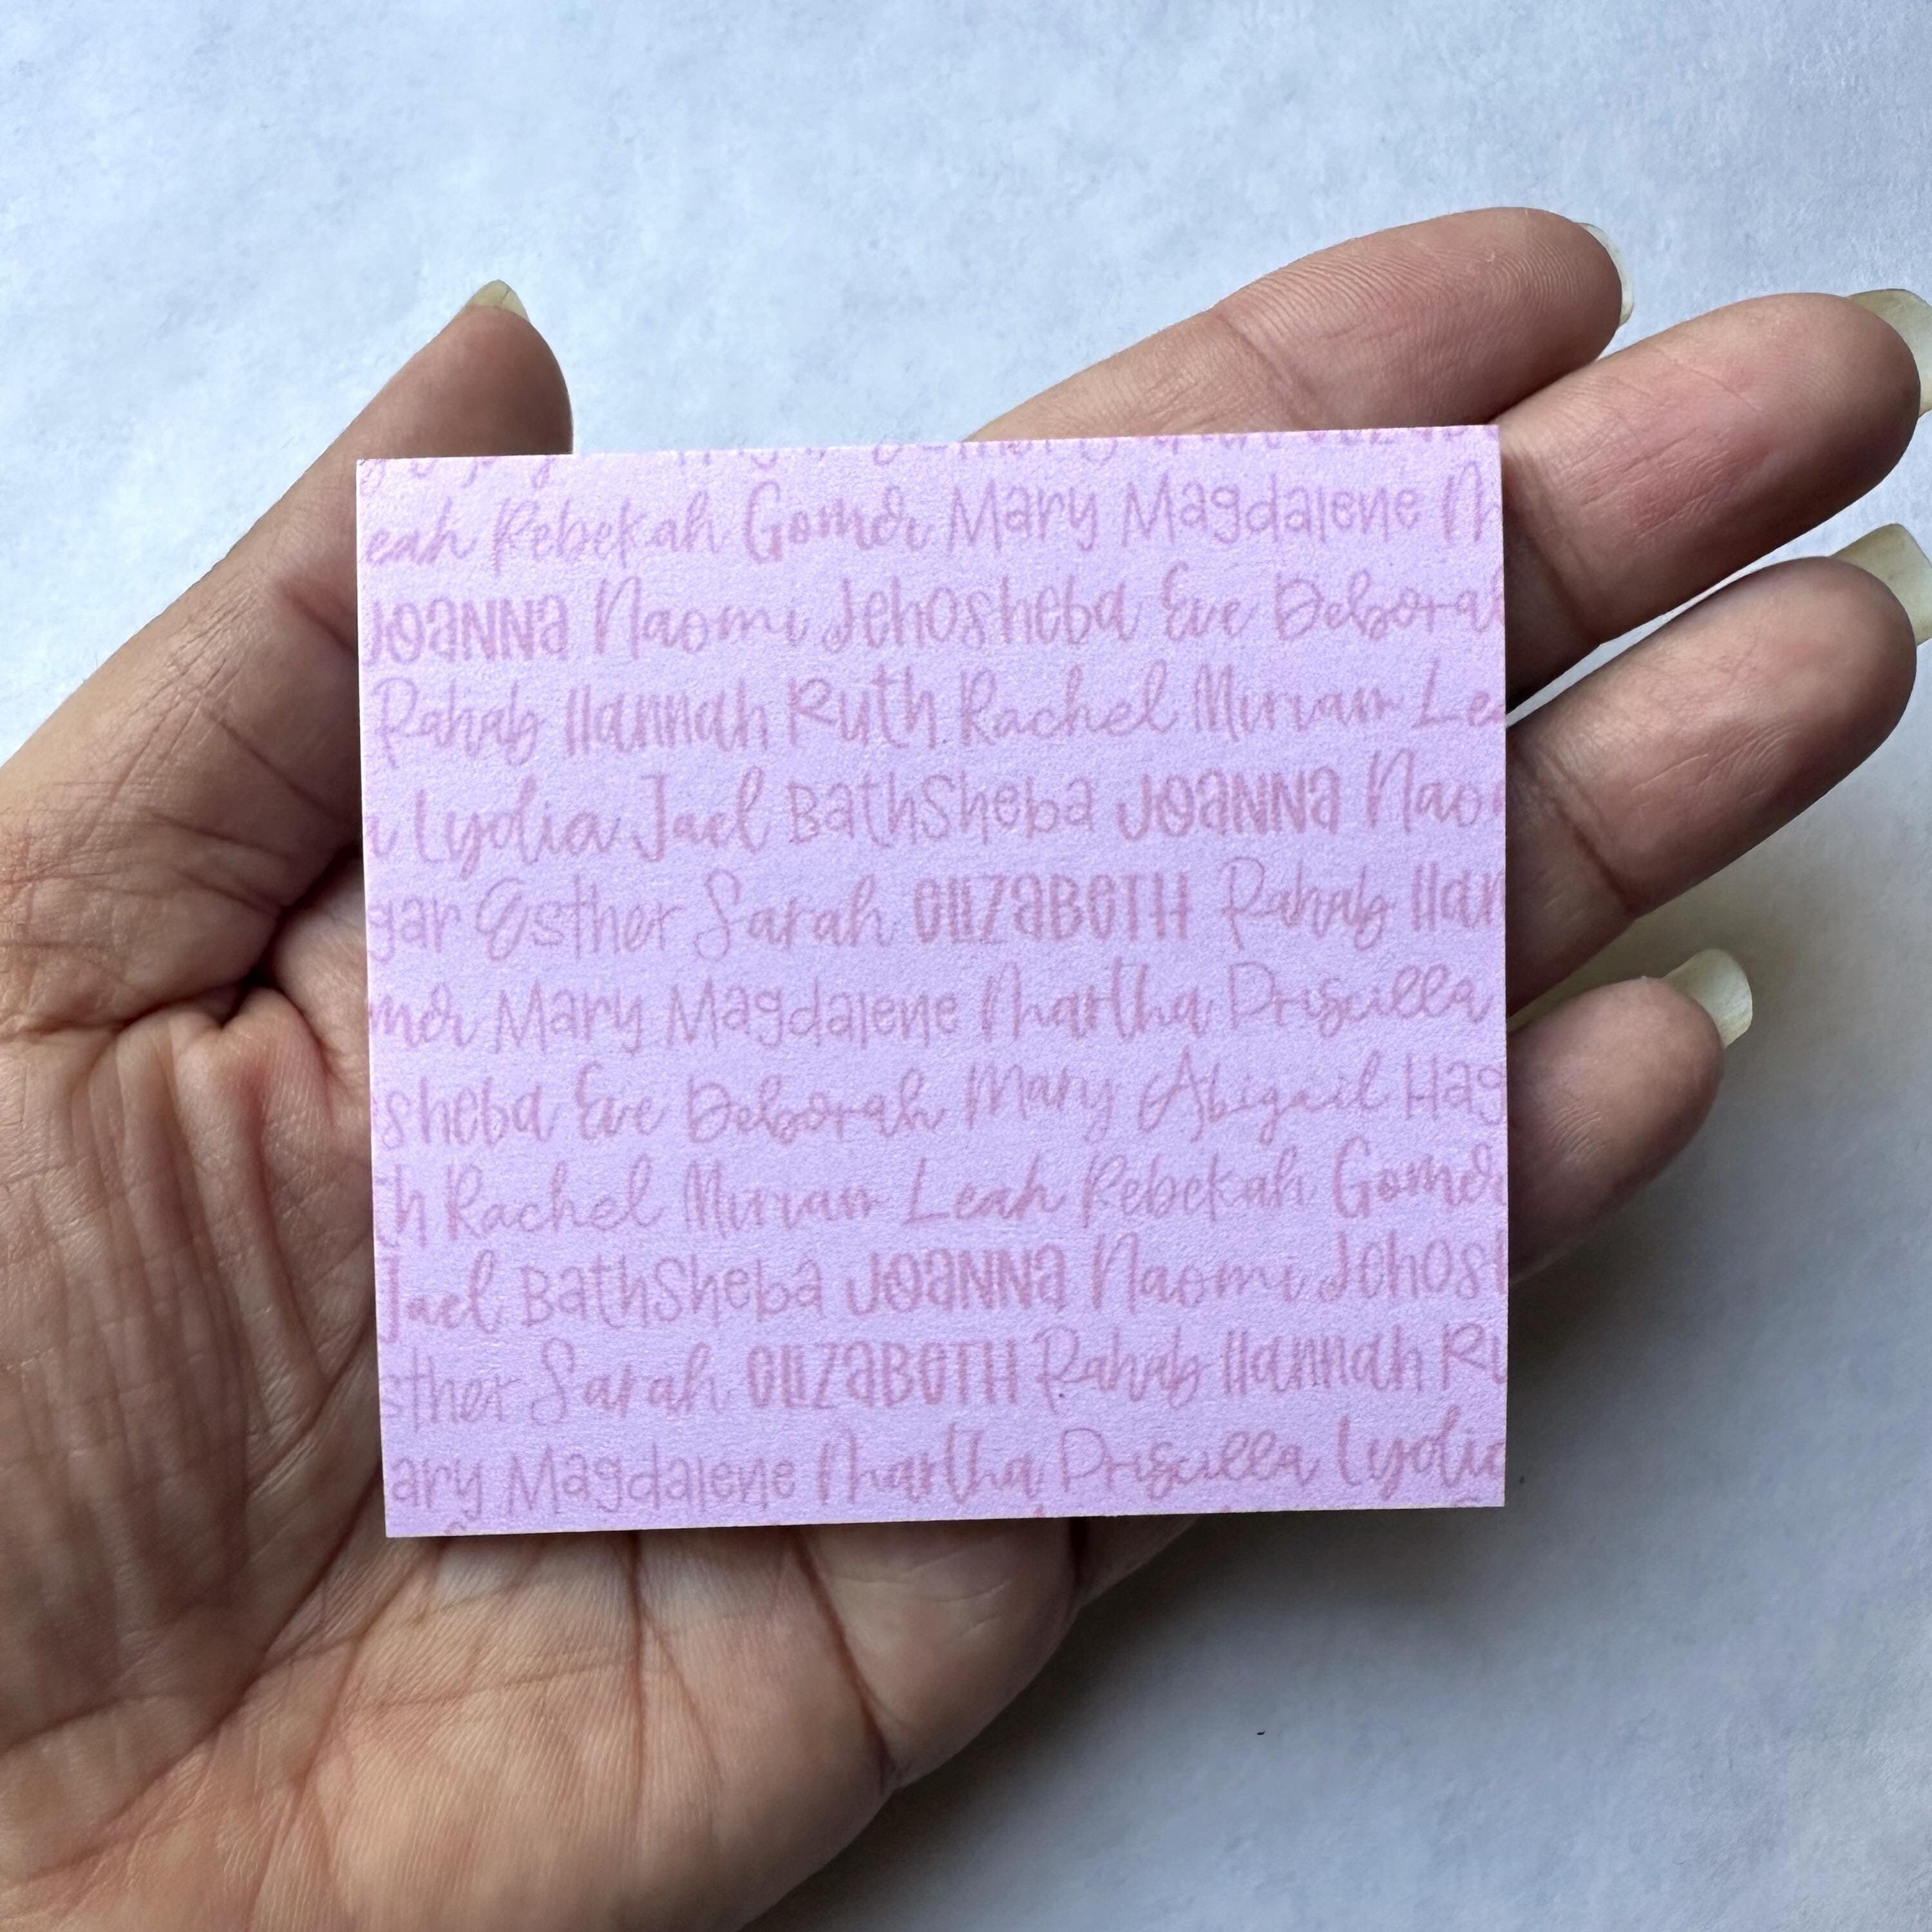 eah Rebekah Gomer Mary Magdalene M
JOANNA Naomi Jehosheba Eve Deborah
Rahab Hannah Ruth Rachel Miriam Lea
a Lydia Jael Bathsheba JOANNA Naom
gar Esther Sarah ELIZABETH Rahab Han
mer Mary Magdalene Martha Priscilla
sheba Eve Deborah Mary Abigail Hag
th Rachel Miriam Leah Rebekah Gomer
Jael Bathsheba JOANNA Naomi Jehosh
sther Sarah ELIZABETH Rahab Hannah Ru
ary Magdalene Martha Priscilla Lydia